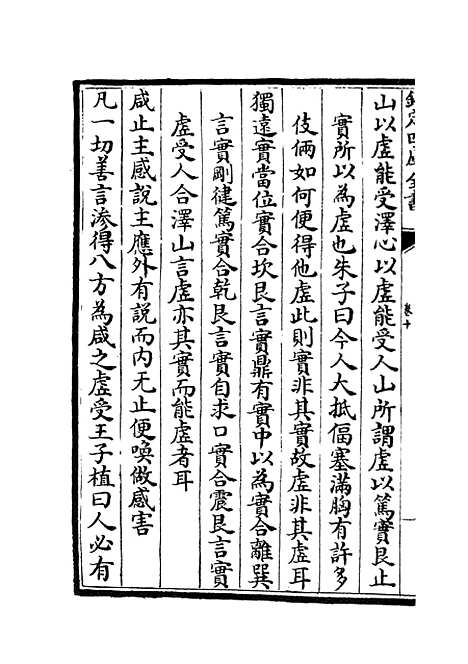 欽定四庫全書
卷十
山以虛能受澤心以虛能受人山所謂虛以篤實艮止
實所以為虛也朱子曰今人大抵偪塞滿胸有許多
伎倆如何便得他虛此則實非其實故虛非其虛耳
獨遠實當位實合坎艮言實鼎有實中以為實合離巽
言實剛健篤實合乾艮言實自求口實合震艮言實
虛受人合澤山言虛亦其實而能虛者耳
咸止主感說主應外有說而內无止便喚做感害
凡一切善言滲得八方為咸之虛受王子植曰人必有